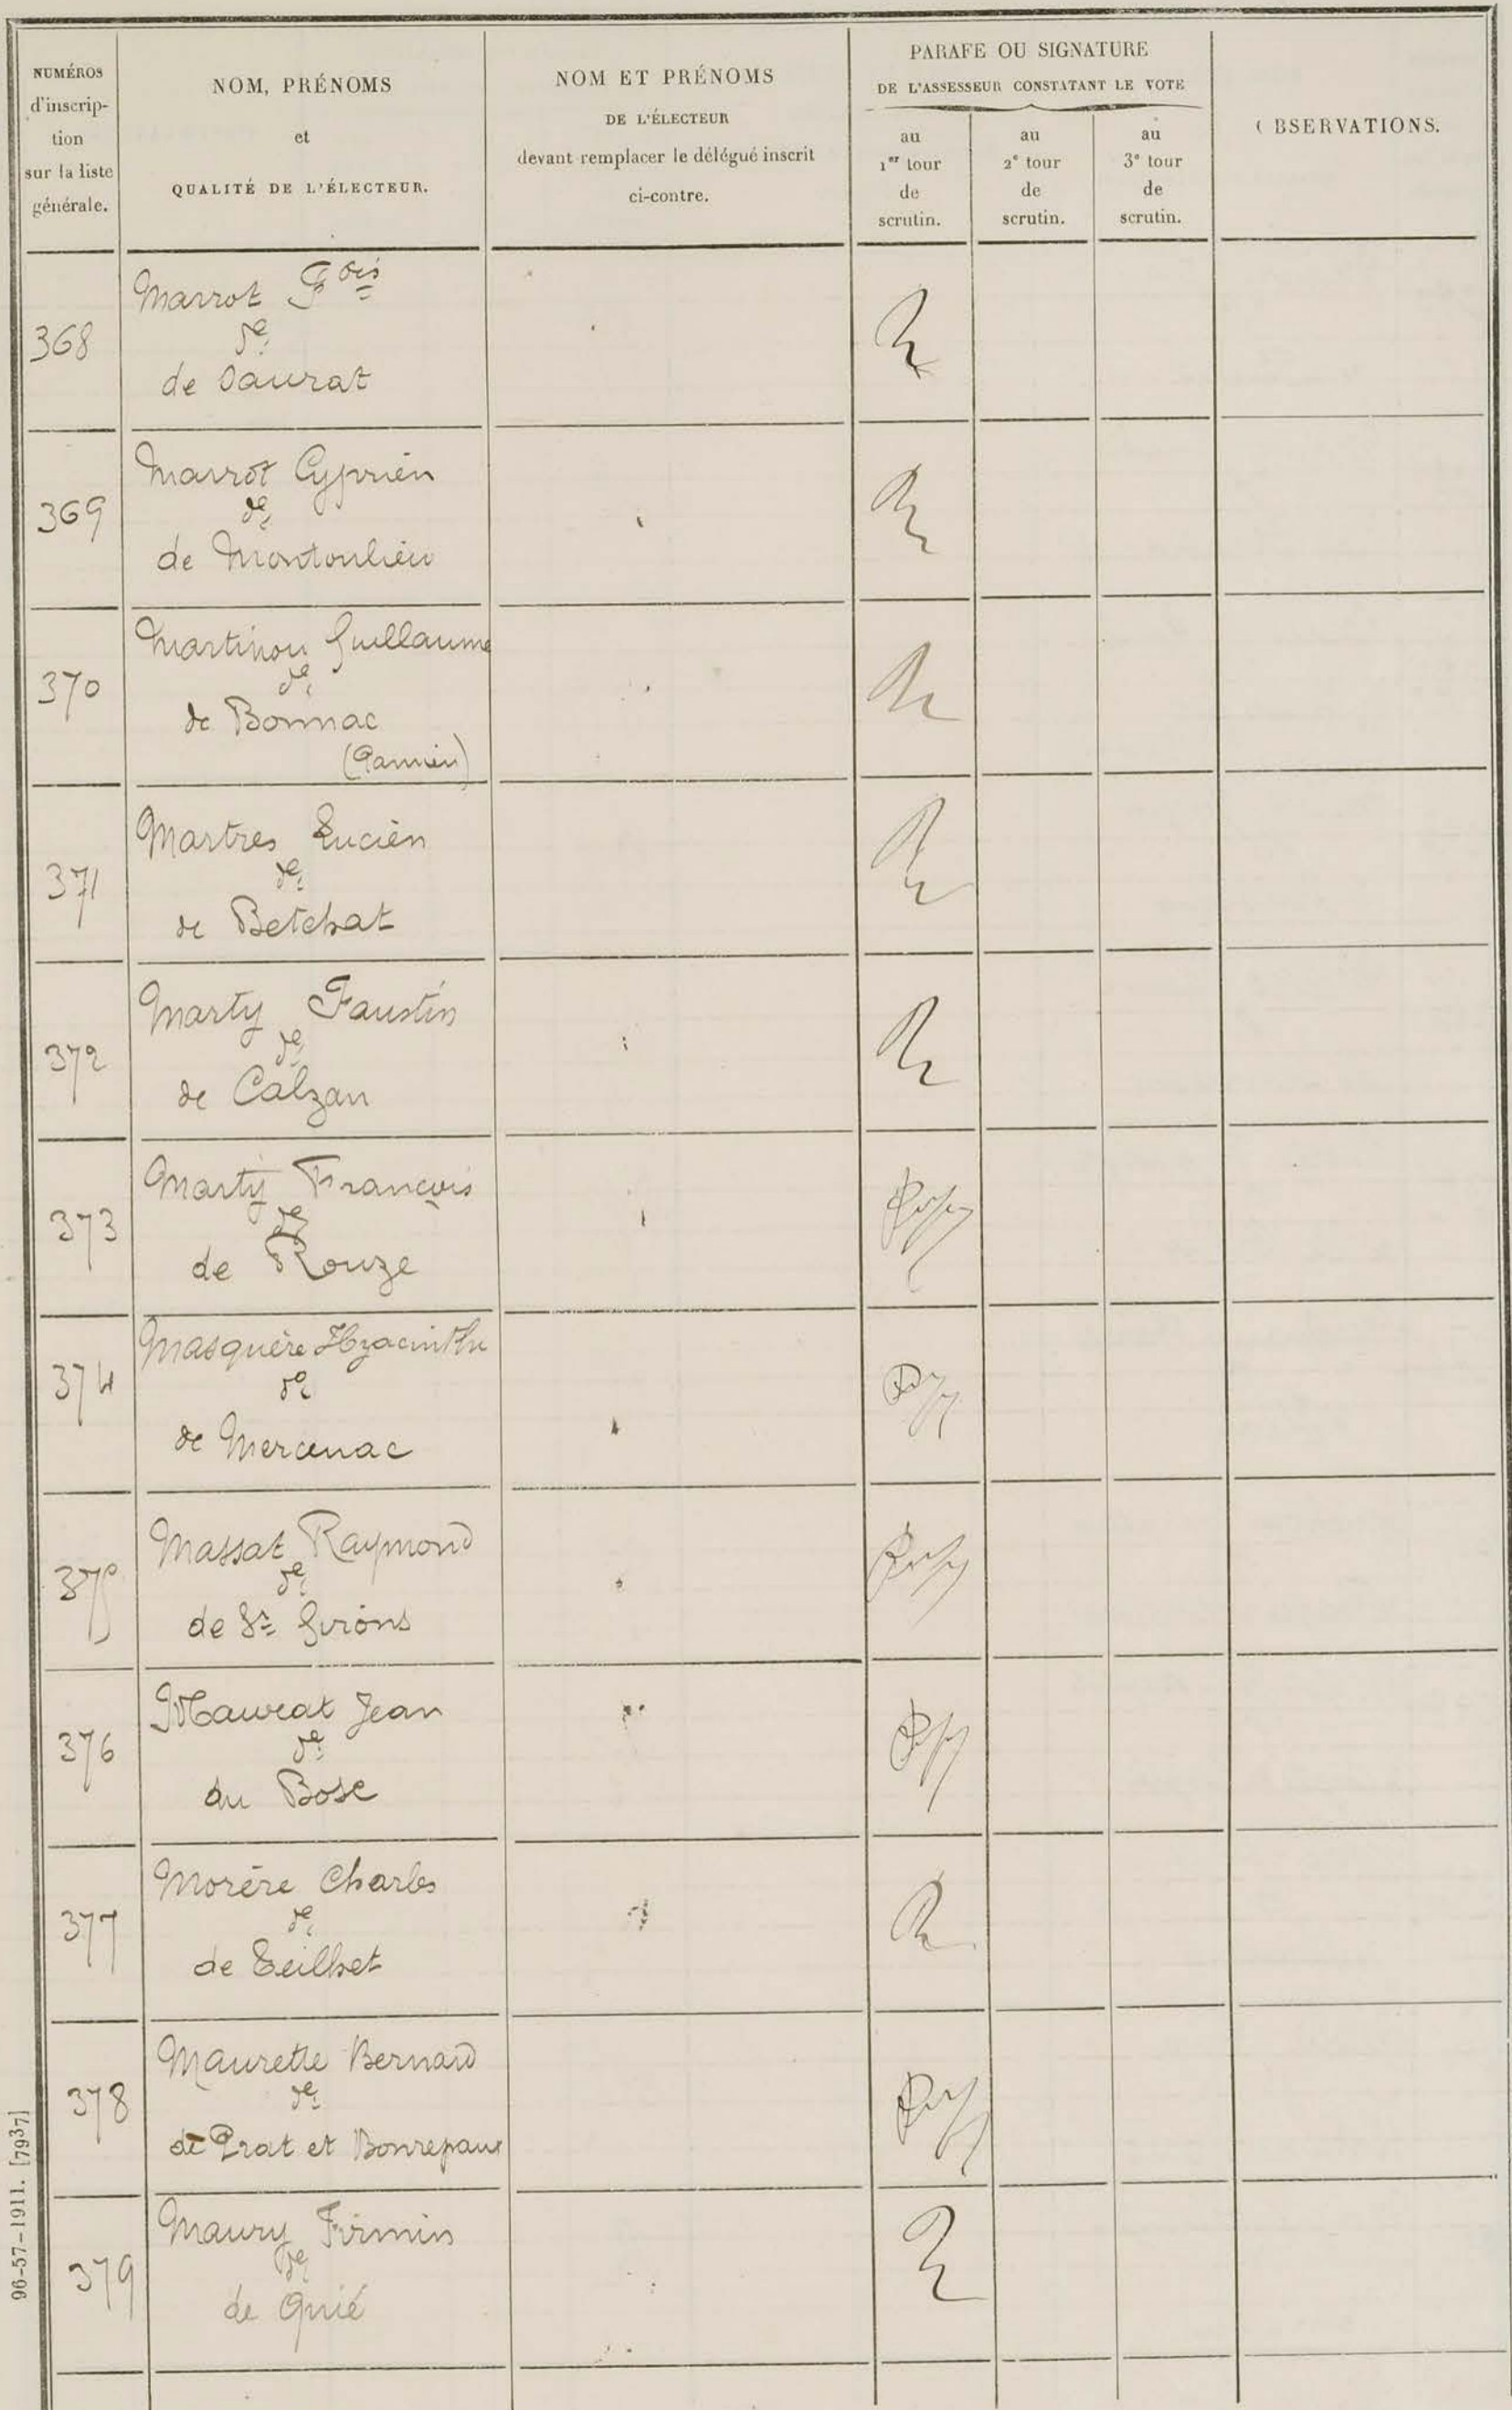 NUMÉROS
d'inscrip-
tion
sur la liste
générale.
NOM, PRÉNOMS
et
QUALITÉ DE L'ÉLECTEUR.
NOM ET PRÉNOMS
DE L'ÉLECTEUR
devant remplacer le délégué inscrit
ci-contre.
PARAFE OU SIGNATURE
DE L'ASSESSEUR CONSTATANT LE VOTE
au
1er tour
de
scrutin.
au
2e tour
de
scrutin.
au
3e tour
de
scrutin.
OBSERVATIONS.
368
Marrot Fois
de
de Saurat
369
Marrot Cyprien
de
de Montoulieu
370
Martinou Guillaume
de
de Bonnac
(Pamiers)
371
Martres Lucien
de
de Betchat
372
Marty Faustin
de
de Calzan
373
Marty François
de
de Rouze
374
Masquère Hyacinthe
de
de Mercenac
375
Massat Raymond
de
de St Girons
376
Maurat Jean
de
du Bosc
377
Morère Charles
de
de Teilhet
378
Maurette Bernard
de
de Prat et Bonrepaux
379
Maury Firmin
de
de Quié
96-57-1911. [7937]